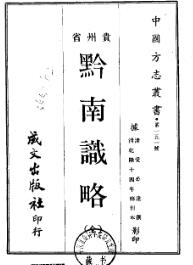 中國方志叢書·第一五一號
貴州省
據
清愛必達撰
清乾隆十四年修刊本
影印
黔南識略
(全)
成文出版社印行
藏书